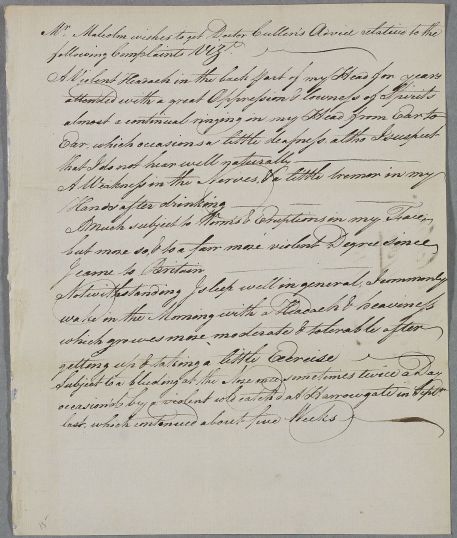 Mr. Malcolm wishes to get Doctor Cullen's Advice relative to the
following Complaints Vizt.
A Violent Headach in the back part of my Head for years
attended with a great Oppression & lowness of Spirits
almost a continual ringing in my Head from Ear to
Ear, which occasions a little deafness, altho I suspect
that I do not hear well naturally
A Weakness in the Nerves, & a little tremor in my
Hands after drinking
Much subject to Worms & Eruptions on my Face,
but more so, & to a far more violent Degree since
I came to Britain
Notwithstanding I sleep well in general, I commonly
wake in the Morning with a Headach & heaviness
which grows more moderate & tolerable after
getting up & taking a little Exercise
Subject to a bleeding at the Nose once sometimes twice a day
occasion'd by a violent cold catch'd at Harrowgate in Septr.
last, which continued about five Weeks